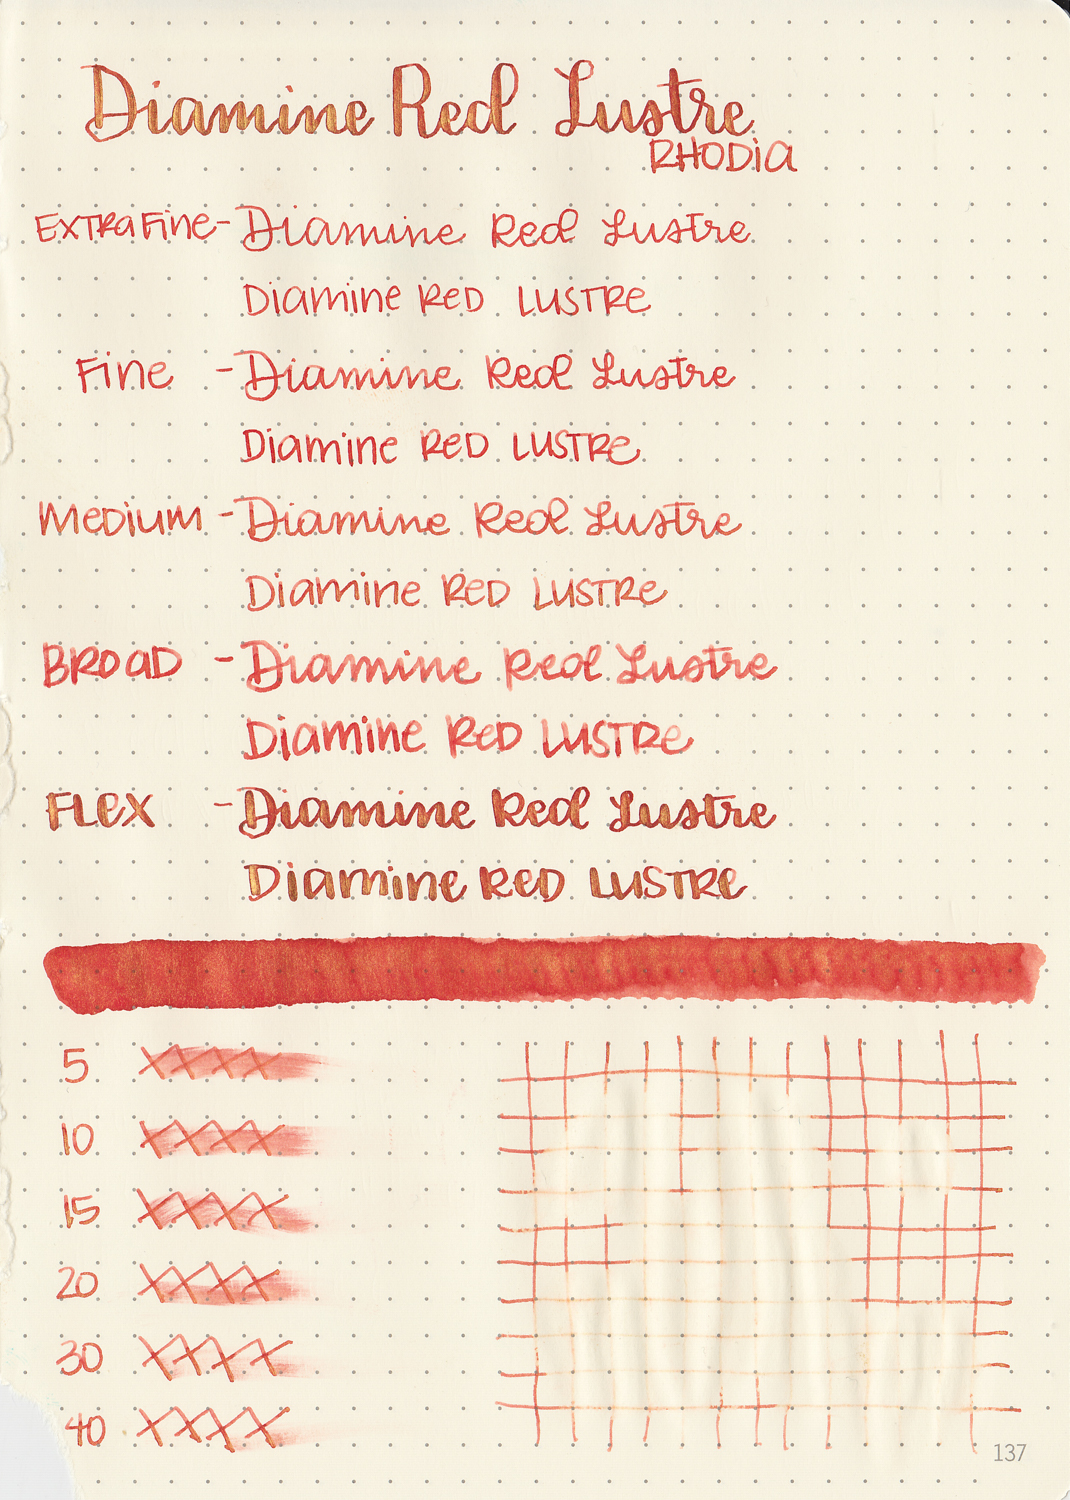 Diamine Red Lustre
RHODIA
EXTRA Fine - Diamine Red Lustre
Diamine RED LUSTRE
Fine - Diamine Red Lustre
Diamine RED LUSTRE
MEDIUM - Diamine Red Lustre
Diamine RED LUSTRE
BROAD - Diamine Red Lustre
Diamine RED LUSTRE
FLEX - Diamine Red Lustre
Diamine RED LUSTRE
5 XXXX
10 XXXX
15 XXXX
20 XXXX
30 XXXX
40 XXXX
137